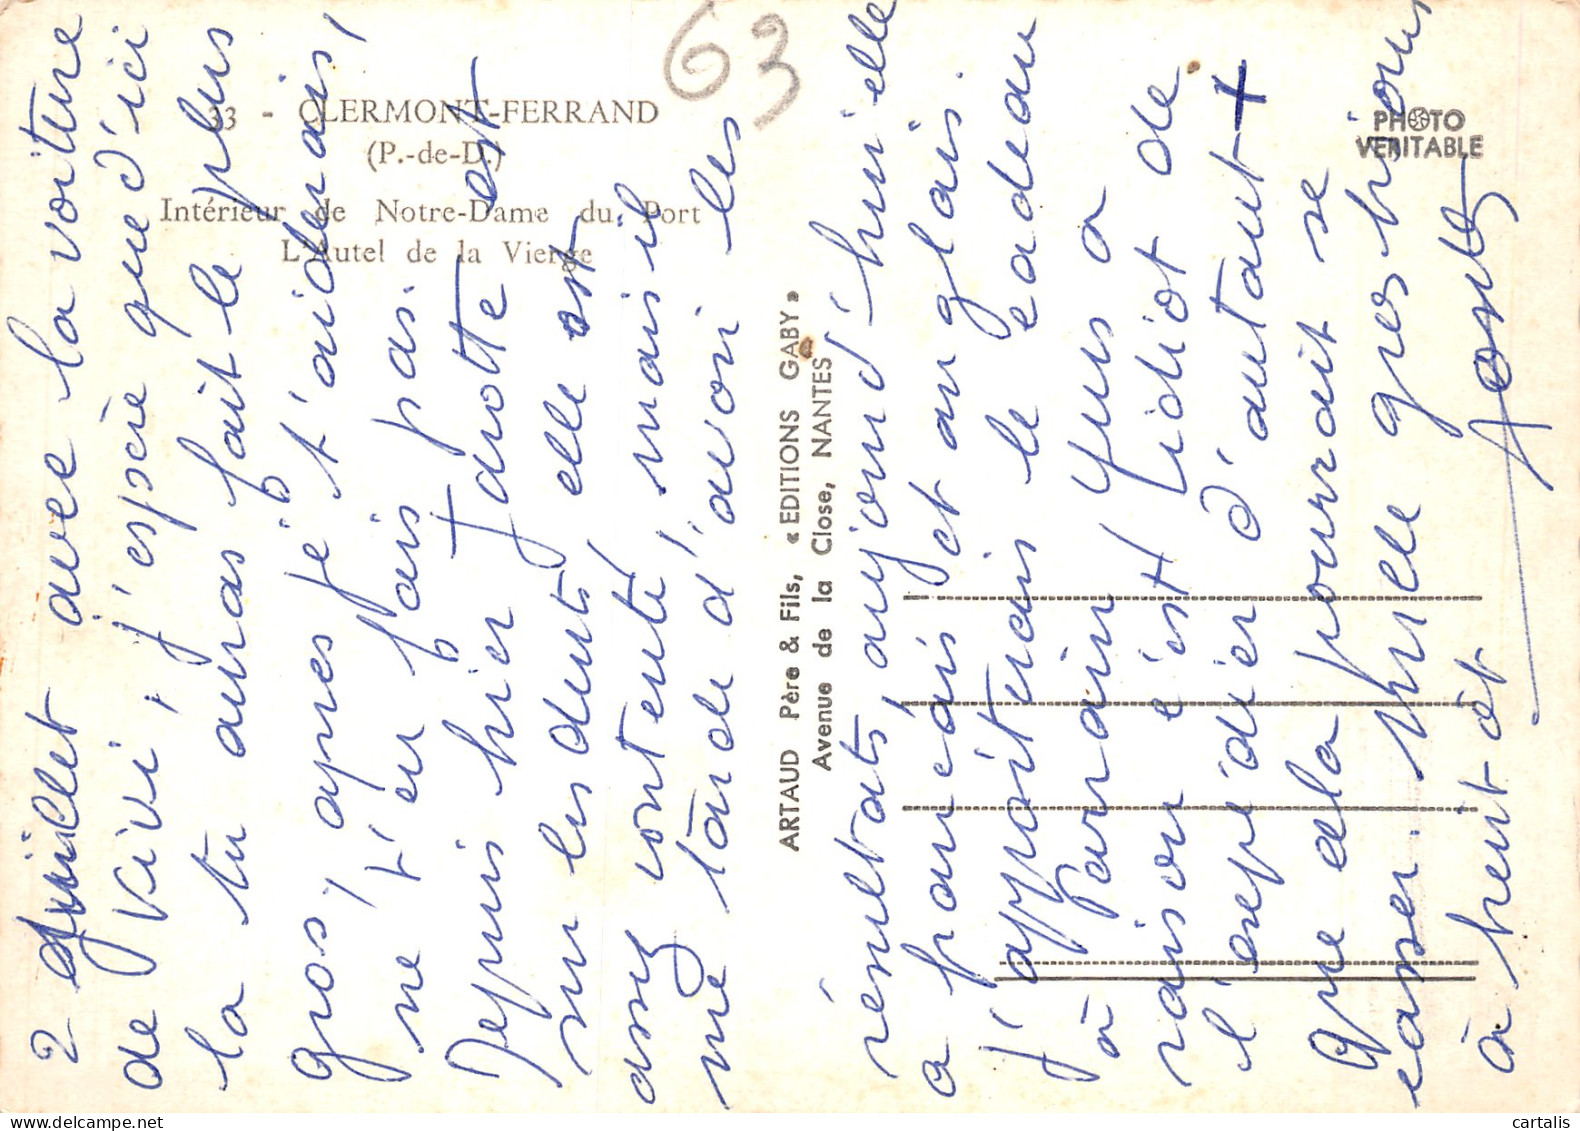 63
33 - CLERMONT-FERRAND
(P.-de-D.)
Intérieur de Notre-Dame du Port
L'Autel de la Vierge
PHOTO
VERITABLE
ARTAUD Père & Fils, « EDITIONS GABY »
Avenue de la Close, NANTES
2 juillet avec la voiture
de Vivi, j'espère que d'ici
la tu auras fait le plus
gros, apres je t'aiderais,
ne t'en fais pas.
Depuis hier Janotte est
sur les dents, elle est
assez contente, mais il
me tarde d'avoir les
résultats, aujourd'hui elle
a français et anglais.
J'apporterais le cadeau
à Perrain, Gus a
raison c'est idiot de
l'expédier d'autant +
Que cela pourrait se
casser. Mille gros bisous
à bientôt